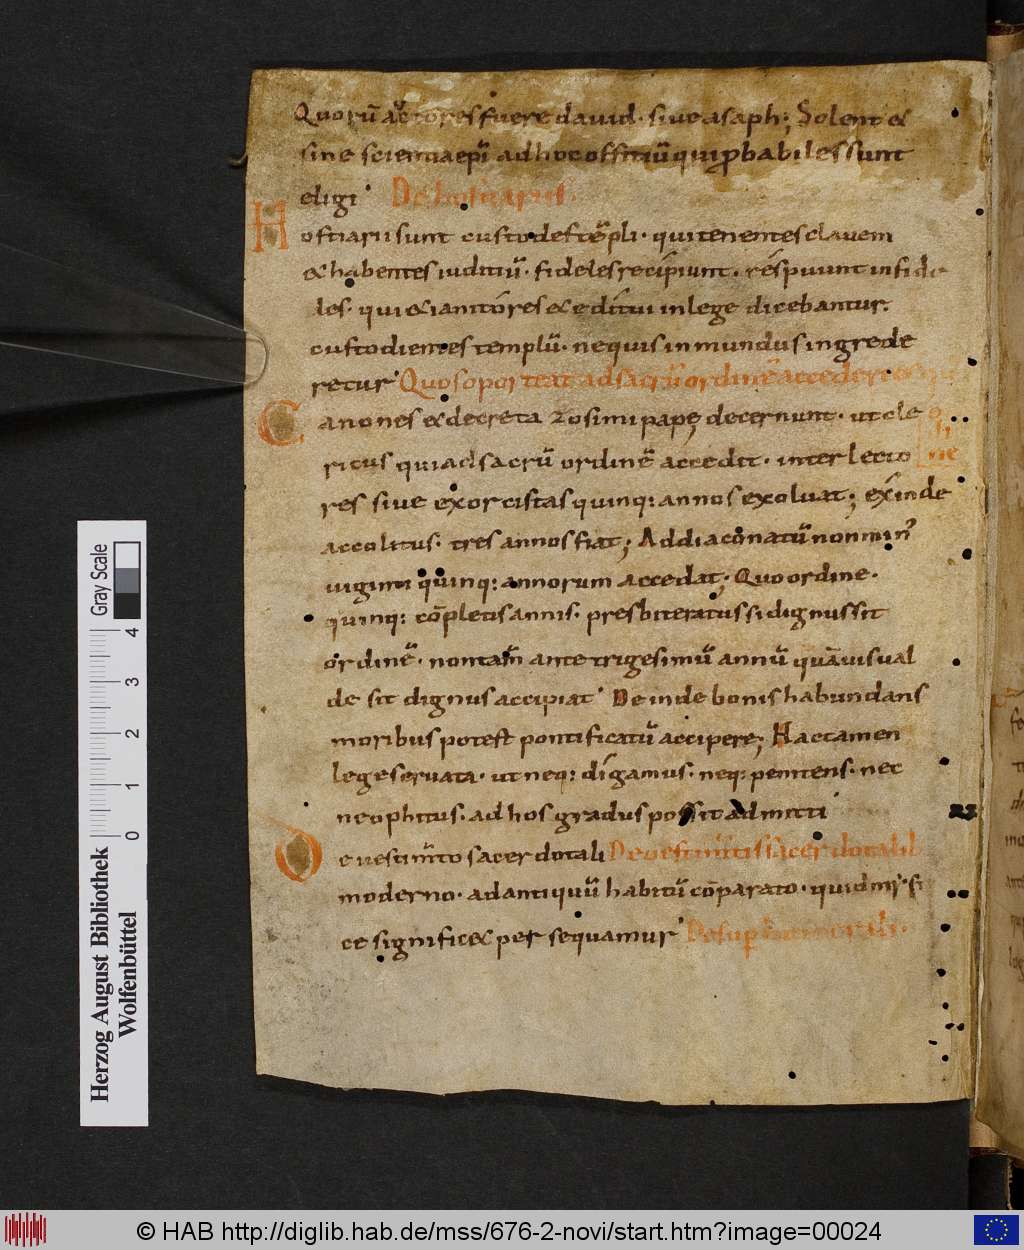 Quorũ actores fuere dauid · siue asaph; Solent &
sine scientia ep̃i ad hoc offitiũ qui p̱babiles sunt
eligi · De hostiariis ·
Hostiarii sunt custodes tẽpli · qui tenentes clauem
& habentes iuditiũ · fideles recipiunt · respuunt infide
les · qui & ianitores & editui in lege dicebantur.
custodientes templũ · ne quis inmundus ingrede
retur · Quos oporteat ad sacrũ ordinẽ accedere
Canones & decreta zosimi papę decernunt · ut cle
ricus qui ad sacrũ ordinẽ accedit · inter lecto
res siue exorcistas quinq: annos exoluat; exinde
accolitus · tres annos fiat; Ad diaconatũ non min᾿
uiginti quinq: annorum accedat; Quo ordine ·
quinq: cõpletis annis · presbiteratus si dignus sit
ordinẽ · non tam̃ ante trigesimũ annũ quãuis ual
de sit dignus accipiat · Deinde bonis habundans
moribus potest pontificatũ accipere; Hac tamen
lege seruata · ut neq: digamus · neq: penitens · nec
neophitus · ad hos gradus possit admitti
De uestim̃to sacerdotali De uestim̃tis sacerdotalib
moderno · ad antiquũ habitũ cõparato · quid mi᾿ · fi
ce signific& per sequamur · De sup
Herzog August Bibliothek
Wolfenbüttel
Gray Scale
0 1 2 3 4
© HAB http://diglib.hab.de/mss/676-2-novi/start.htm?image=00024